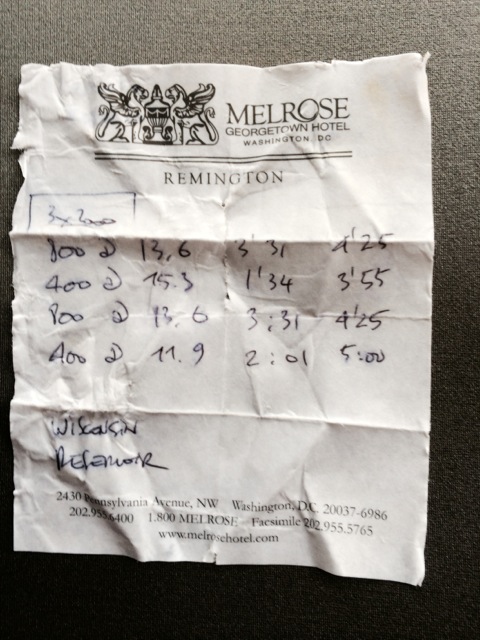 MELROSE
GEORGETOWN HOTEL
WASHINGTON, DC
REMINGTON
800 @ 13.6 3'31 4'25
400 @ 15.3 1'34 3'55
800 @ 13.6 3:31 4'25
400 @ 11.9 2:01 5:00
WISCONSIN
RESERVOIR
2430 Pennsylvania Avenue, NW Washington, D.C. 20037-6986
202.955.6400 1.800 MELROSE Facsimile 202.955.5765
www.melrosehotel.com